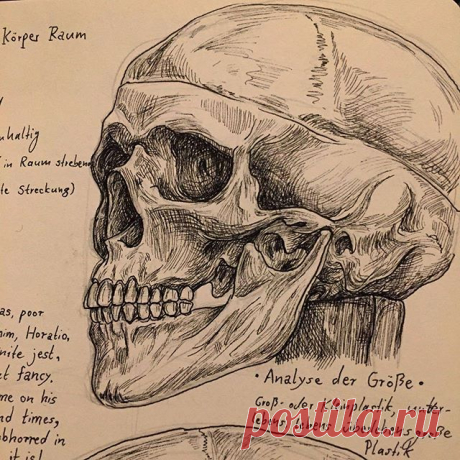 Körper Raum
nhaltig
in Raum streben
te Streckung)
as, poor
him, Horatio,
nite jest,
t fancy.
me on his
nd times,
bhorred in
it is!
• Analyse der Größe •
Groß- oder Kleinplastik
Plastik
postila.ru